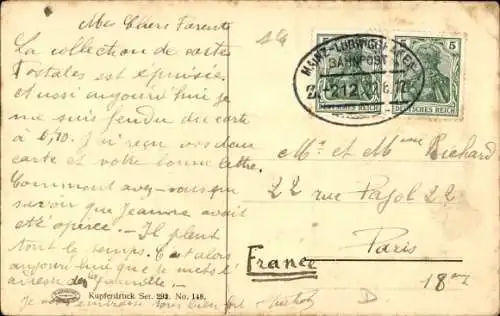 Mes Chers Parents
La collection de cartes
Postales est épuisée
et aussi aujourd'hui je
me suis fendu du carte
à 0,10. J'ai reçu vos deux
carte et votre bonne lettre.
Comment avez-vous pu
savoir que Jeanne avait
été opérée. - Il pleut
tout le temps. C'est alors
aujourd'hui que je mets l'
adresse de la famille -
Je vous embrasse tous bien fort -
MAINZ-LUDWIGSHAFEN
BAHNPOST
212
5
5
DEUTSCHES REICH
DEUTSCHES REICH
Mr et Mme Richard
22 rue Pajol 22
Paris
18me
France
Kupferdruck Ser. 293. No. 148.